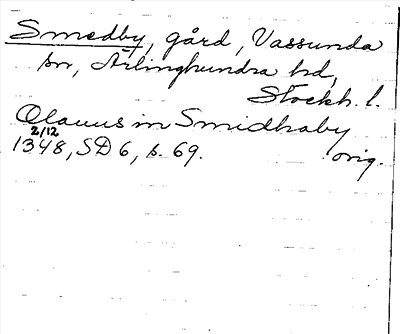 Smedby, gård, Vassunda
sn, Ärlinghundra hd,
Stockh. l.
Olauus in Smidhaby
2/12
1348, SD 6, s. 69. orig.